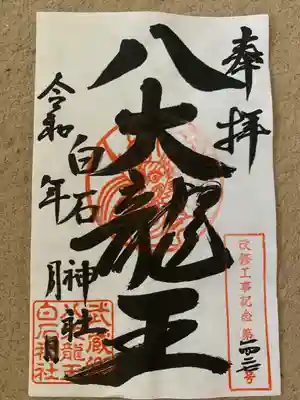 奉拝
八大龍王
白石神社
令和 年 月 日
改修工事記念 第一四二号
武蔵御嶽
八大龍王
白石神社